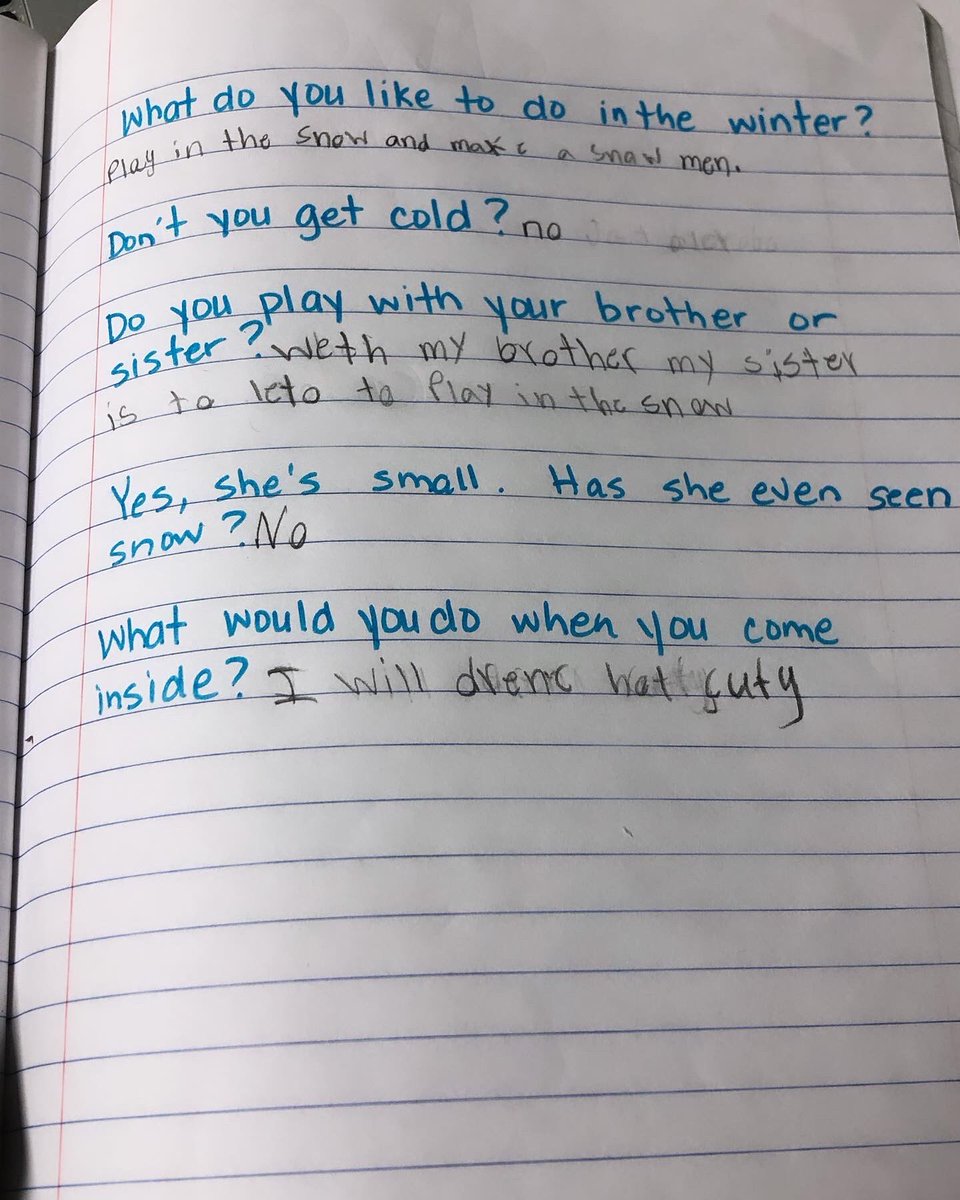 What do you like to do in the winter?
Play in the snow and make a snow men.
Don't you get cold? no
Do you play with your brother or
sister? Weth my brother my sister
is to leto to Play in the snow
Yes, she's small. Has she even seen
snow? No
What would you do when you come
inside? I will drenc hot cuty